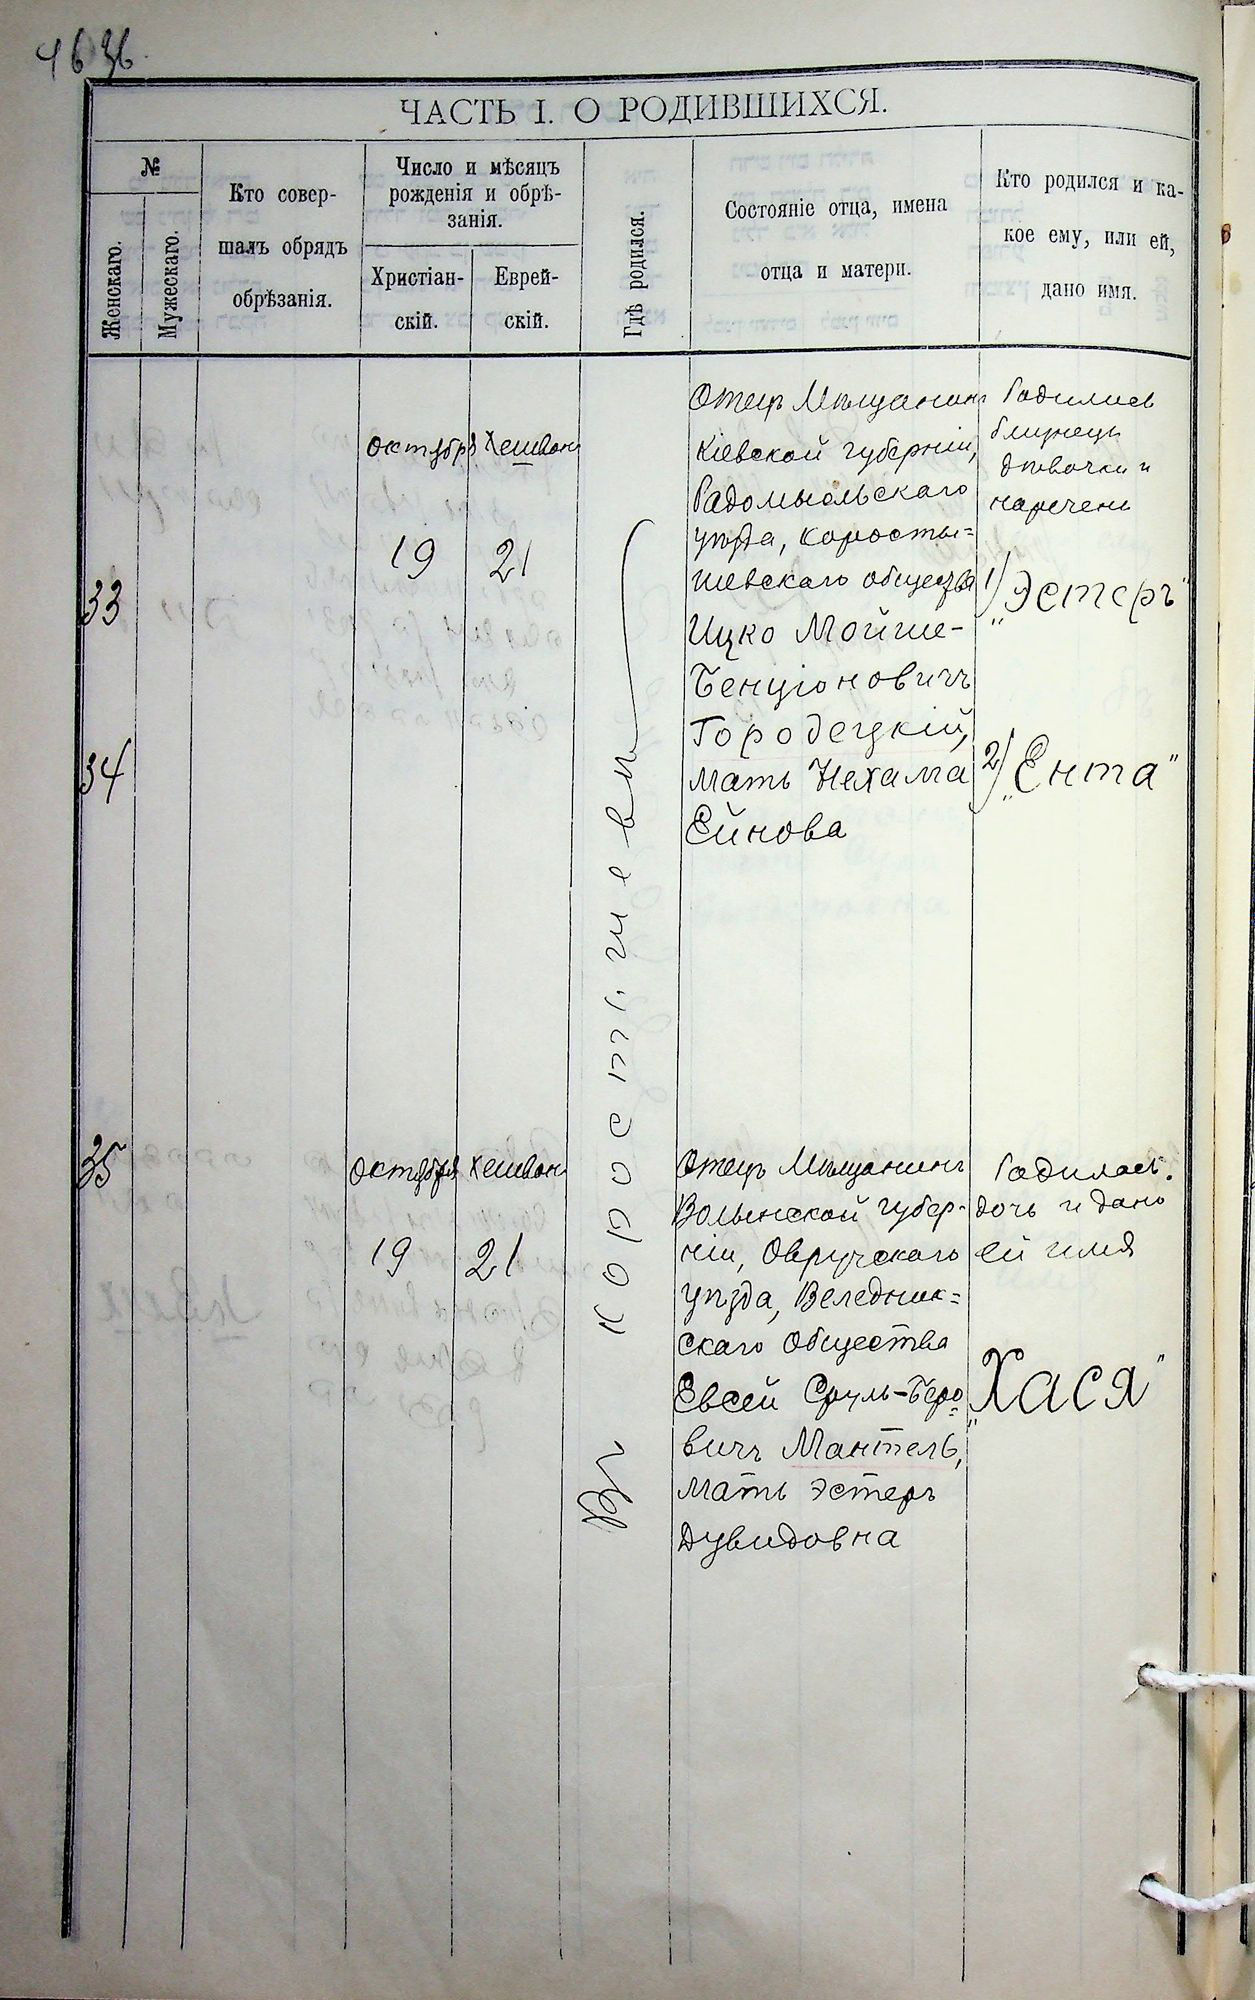 ЧАСТЬ I. О РОДИВШИХСЯ.
№
Женскаго.
Мужескаго.
Кто совер-
шалъ обрядъ
обрѣзанія.
Число и мѣсяцъ
рожденія и обрѣ-
занія.
Христіан-
скій.
Еврей-
скій.
Гдѣ родился.
Состояніе отца, имена
отца и матери.
Кто родился и ка-
кое ему, или ей,
дано имя.
33
34
октября
19
Хешвон
21
Въ Коростышевѣ
Отецъ Мѣщанинъ
Кіевской губерніи,
Радомысльскаго
уѣзда, Коросты=
шевскаго общества
Ицко Мойше-
Бенціоновичъ
Городецкій,
мать Нехама
Ейнова
Родились
близнецы
дѣвочки и
наречены
1/ „Эстеръ"
2/ „Ента"
35
октября
19
Хешвон
21
Отецъ Мѣщанинъ
Волынской губер-
ніи, Овручскаго
уѣзда, Веледник=
скаго Общества
Евсей Сруль-Беро=
вичъ Мантель,
мать Эстеръ
Дувидовна
Родилась
дочь и дано
ей имя
„Хася"